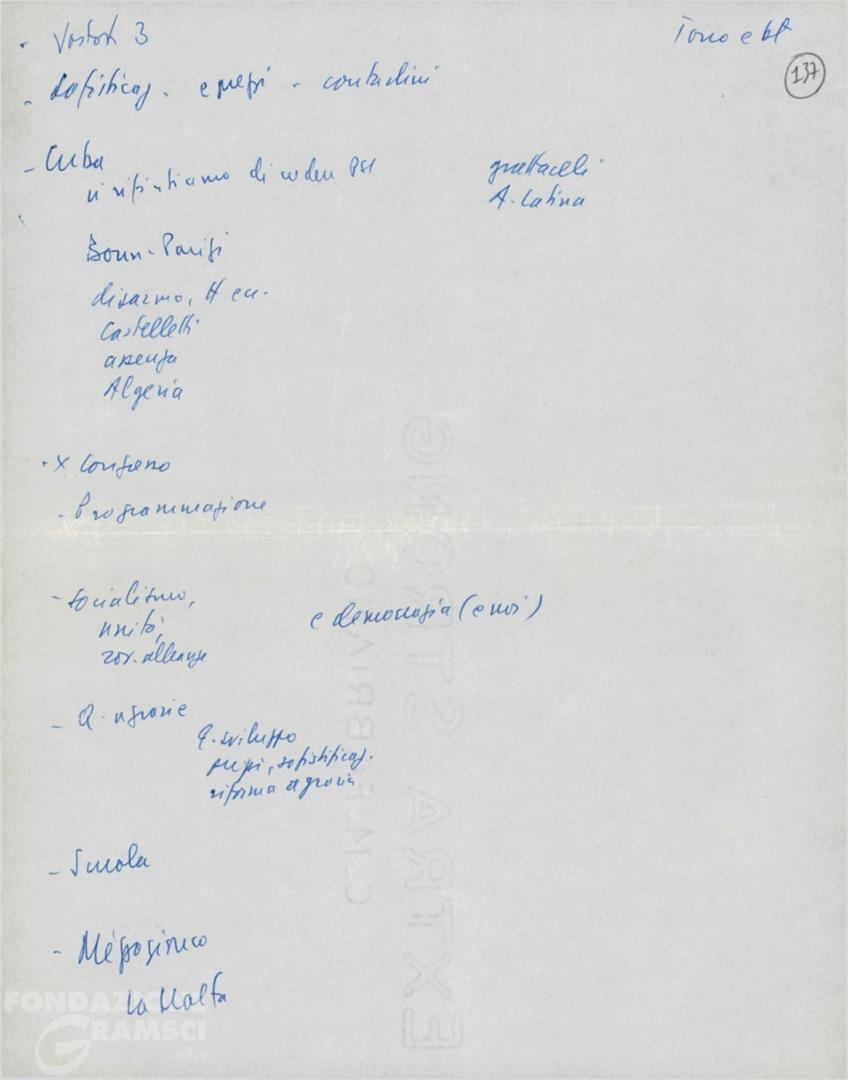 · Vostok 3
Tono e bt
137
- Sofisticaz. e prezzi - contadini
- Cuba
ci rifiutiamo di PSI
grattacieli
A. Latina
Bonn-Parigi
disarmo, H
Castelletti
assenza
Algeria
· X Congresso
- Programmazione
- Socialismo,
unità,
e democrazia (e noi)
gov. alleanze
- Q. agrarie
E. sviluppo
prezzi, sofistificaz.
riforma agraria
- Scuola
- Mezzogiorno
La Malfa
EXTRA STRONG
C.M. FABRIANO
FONDAZIONE
GRAMSCI
onlus